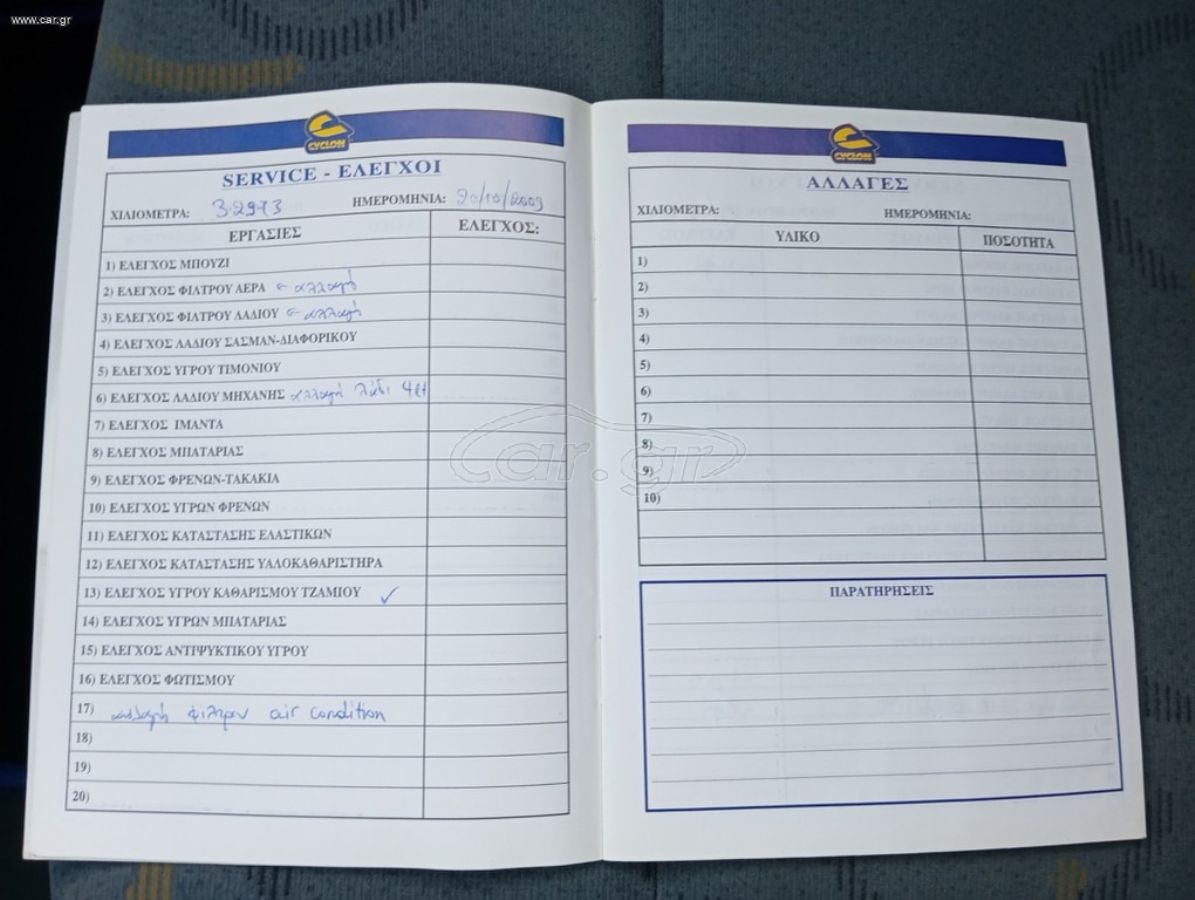 www.car.gr
CYCLON
SERVICE - ΕΛΕΓΧΟΙ
ΧΙΛΙΟΜΕΤΡΑ: 32973 ΗΜΕΡΟΜΗΝΙΑ: 20/10/2009
ΕΡΓΑΣΙΕΣ ΕΛΕΓΧΟΣ:
1) ΕΛΕΓΧΟΣ ΜΠΟΥΖΙ
2) ΕΛΕΓΧΟΣ ΦΙΛΤΡΟΥ ΑΕΡΑ αλλαγή
3) ΕΛΕΓΧΟΣ ΦΙΛΤΡΟΥ ΛΑΔΙΟΥ αλλαγή
4) ΕΛΕΓΧΟΣ ΛΑΔΙΟΥ ΣΑΣΜΑΝ-ΔΙΑΦΟΡΙΚΟΥ
5) ΕΛΕΓΧΟΣ ΥΓΡΟΥ ΤΙΜΟΝΙΟΥ
6) ΕΛΕΓΧΟΣ ΛΑΔΙΟΥ ΜΗΧΑΝΗΣ αλλαγή λάδι 4lt
7) ΕΛΕΓΧΟΣ ΙΜΑΝΤΑ
8) ΕΛΕΓΧΟΣ ΜΠΑΤΑΡΙΑΣ
9) ΕΛΕΓΧΟΣ ΦΡΕΝΩΝ-ΤΑΚΑΚΙΑ
10) ΕΛΕΓΧΟΣ ΥΓΡΩΝ ΦΡΕΝΩΝ
11) ΕΛΕΓΧΟΣ ΚΑΤΑΣΤΑΣΗΣ ΕΛΑΣΤΙΚΩΝ
12) ΕΛΕΓΧΟΣ ΚΑΤΑΣΤΑΣΗΣ ΥΑΛΟΚΑΘΑΡΙΣΤΗΡΑ
13) ΕΛΕΓΧΟΣ ΥΓΡΟΥ ΚΑΘΑΡΙΣΜΟΥ ΤΖΑΜΙΟΥ ✓
14) ΕΛΕΓΧΟΣ ΥΓΡΩΝ ΜΠΑΤΑΡΙΑΣ
15) ΕΛΕΓΧΟΣ ΑΝΤΙΨΥΚΤΙΚΟΥ ΥΓΡΟΥ
16) ΕΛΕΓΧΟΣ ΦΩΤΙΣΜΟΥ
17) αλλαγή φιλτρου air condition
18)
19)
20)
CYCLON
ΑΛΛΑΓΕΣ
ΧΙΛΙΟΜΕΤΡΑ: ΗΜΕΡΟΜΗΝΙΑ:
ΥΛΙΚΟ ΠΟΣΟΤΗΤΑ
1)
2)
3)
4)
5)
6)
7)
8)
9)
10)
ΠΑΡΑΤΗΡΗΣΕΙΣ
car.gr